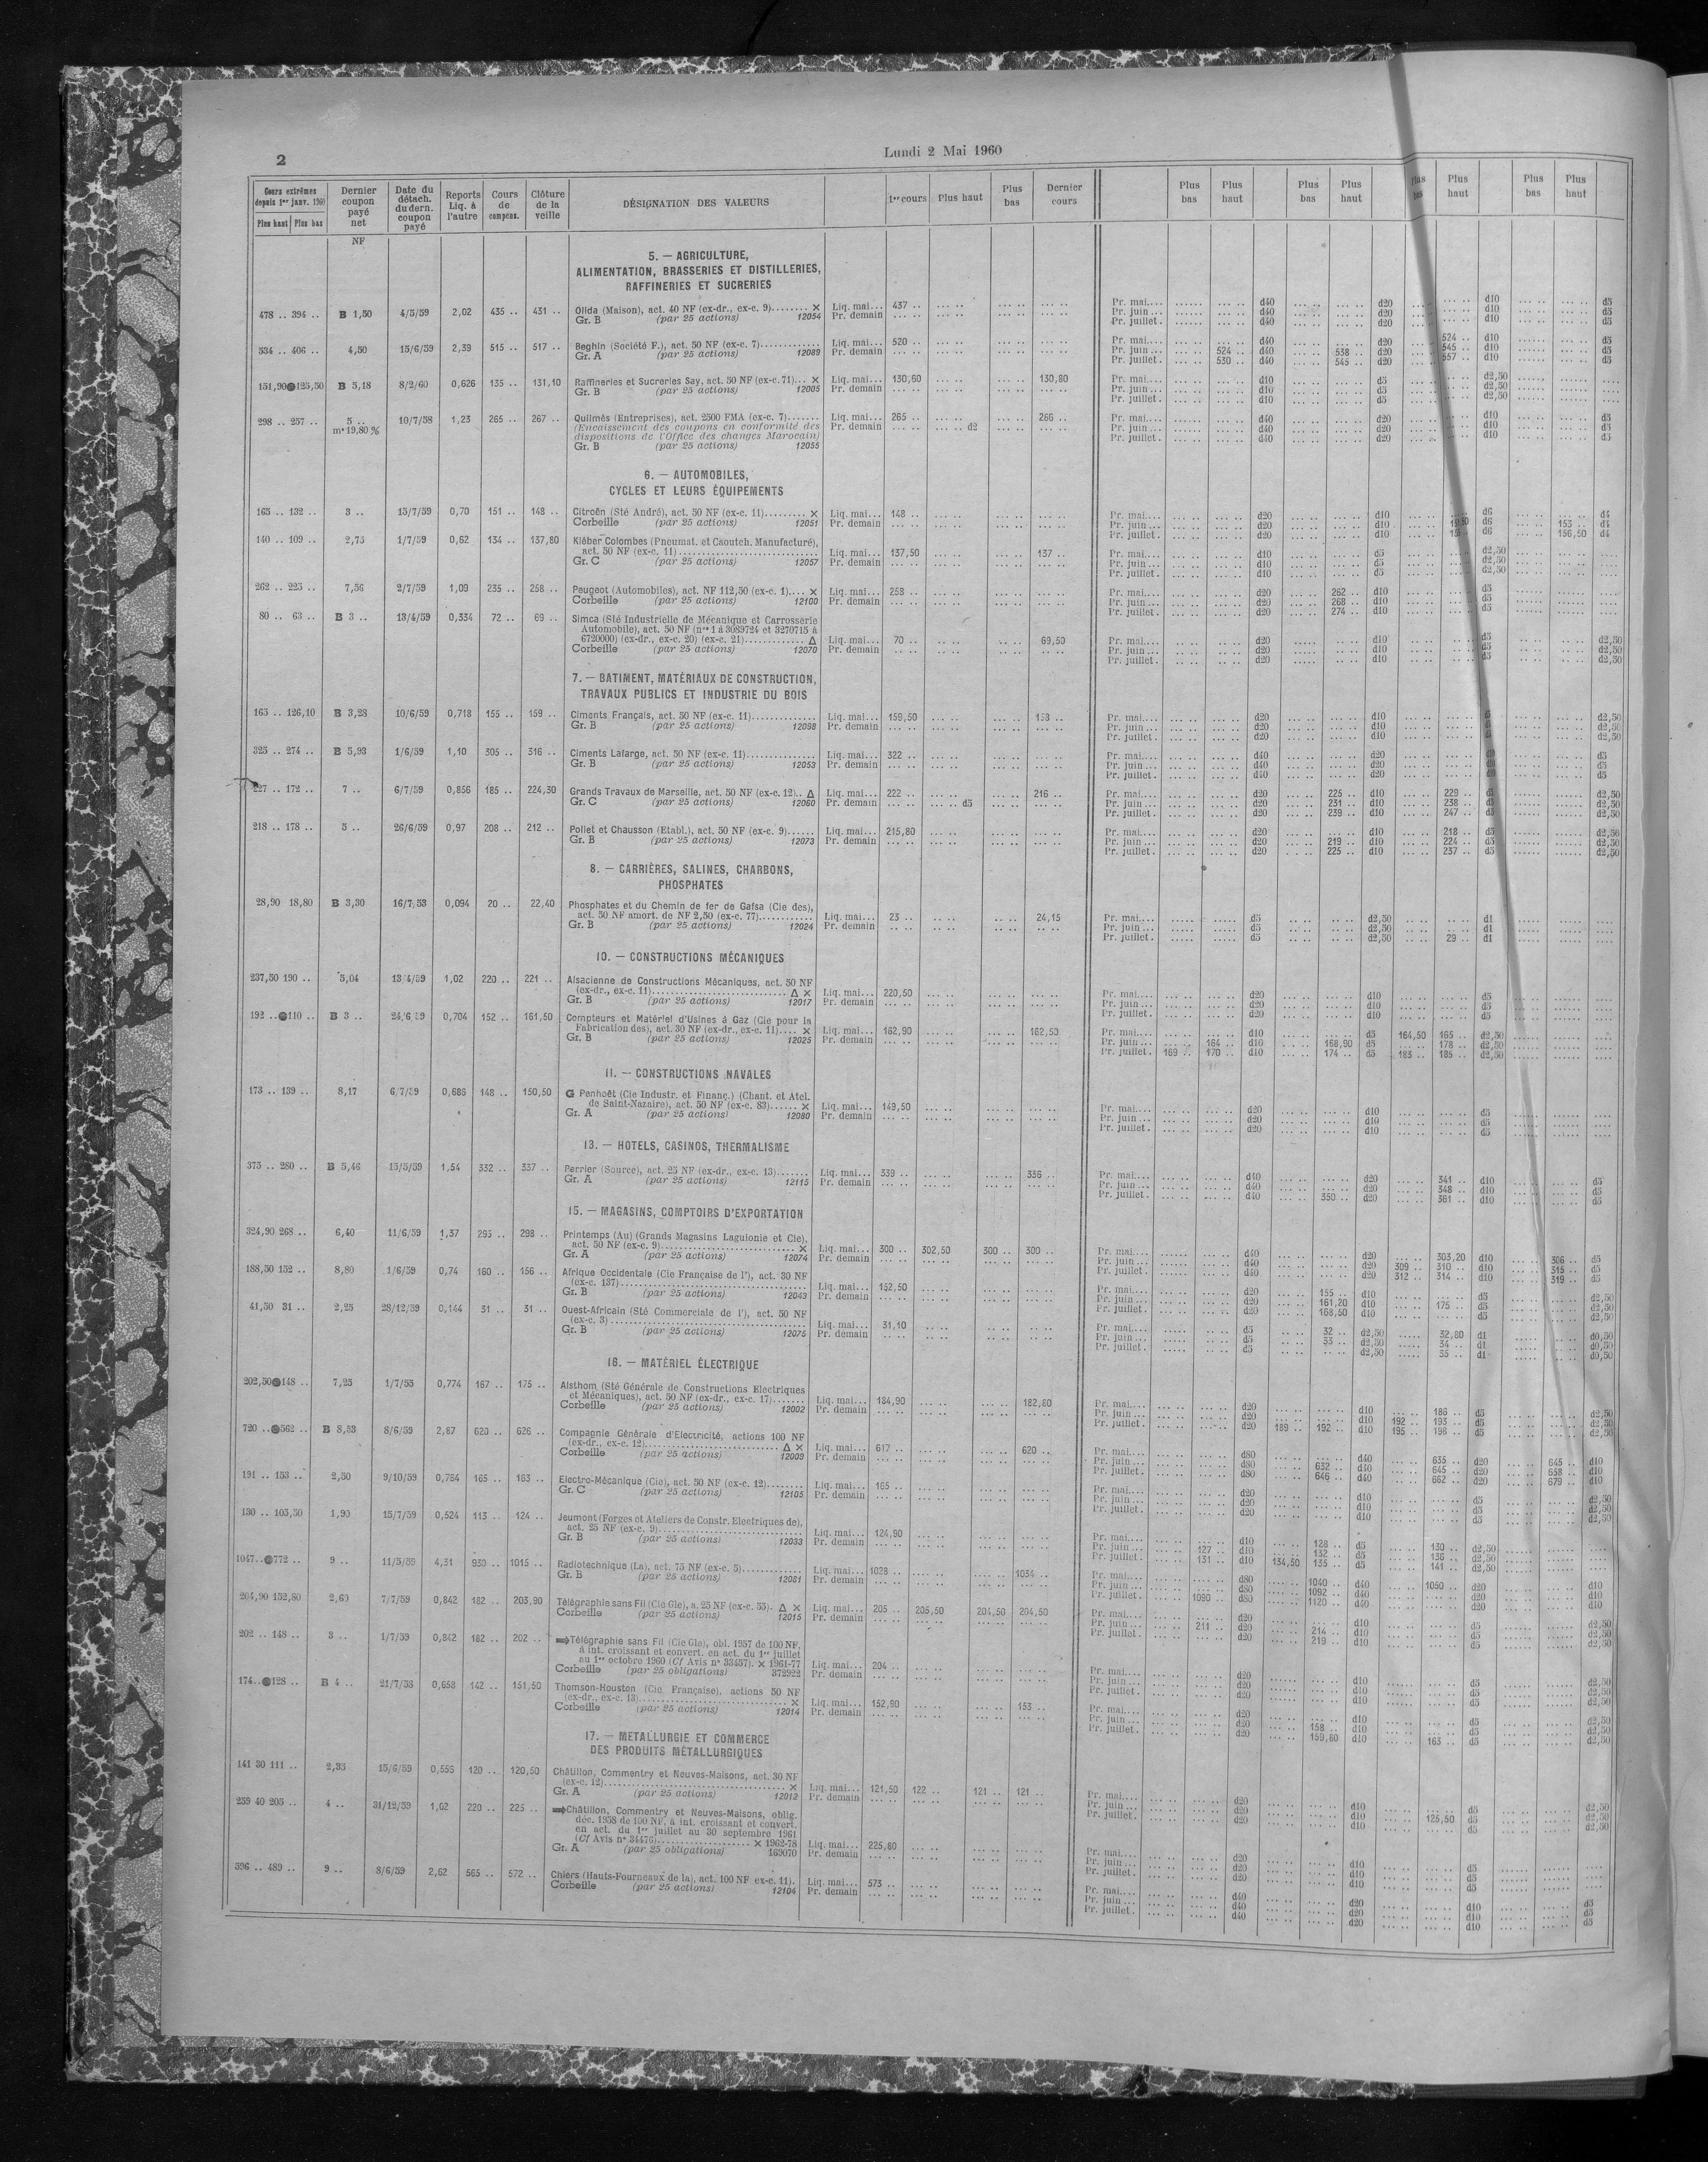 2
Lundi 2 Mai 1960
Cours extrêmes depuis 1er janv. 1960 Plus haut Plus bas | Dernier coupon payé net | Date du détach. du dern. coupon payé | Reports Liq. à l'autre | Cours de compens. | Clôture de la veille | DÉSIGNATION DES VALEURS | 1er cours | Plus haut | Plus bas | Dernier cours | Plus bas | Plus haut | Plus bas | Plus haut | Plus bas | Plus haut | Plus bas | Plus haut
NF
5. — AGRICULTURE,
ALIMENTATION, BRASSERIES ET DISTILLERIES,
RAFFINERIES ET SUCRERIES
478 .. 394 .. B 1,50 4/5/59 2,02 435 .. 431 .. Olida (Maison), act. 40 NF (ex-dr., ex-c. 9)........ × Liq. mai... 437 .. Pr. mai.... d40 d20 d10 d5
Gr. B (par 25 actions) 12054 Pr. demain Pr. juin ... d40 d20 d10 d5
Pr. juillet. d40 d20 d10 d5
534 .. 406 .. 4,50 15/6/59 2,39 515 .. 517 .. Beghin (Société F.), act. 50 NF (ex-c. 7)............ Liq. mai... 520 .. Pr. mai.... d40 d20 524 .. d10 d5
Gr. A (par 25 actions) 12089 Pr. demain Pr. juin ... 524 .. d40 538 .. d20 545 .. d10 d5
Pr. juillet. 530 .. d40 545 .. d20 557 .. d10 d5
151,90 125,50 B 5,18 8/2/60 0,626 135 .. 131,10 Raffineries et Sucreries Say, act. 50 NF (ex-c. 71)... × Liq. mai... 130,60 130,80 Pr. mai.... d10 d5 d2,50
Gr. B (par 25 actions) 12005 Pr. demain Pr. juin ... d10 d5 d2,50
Pr. juillet. d10 d5 d2,50
298 .. 257 .. 5 .. 10/7/58 1,23 265 .. 267 .. Quilmès (Entreprises), act. 2500 FMA (ex-c. 7)....... Liq. mai... 265 .. 266 .. Pr. mai.... d40 d20 d10 d5
m. 19,80 % (Encaissement des coupons en conformité des Pr. demain d2 Pr. juin ... d40 d20 d10 d5
dispositions de l'Office des changes Marocain) Pr. juillet. d40 d20 d10 d5
Gr. B (par 25 actions) 12055
6. — AUTOMOBILES,
CYCLES ET LEURS ÉQUIPEMENTS
165 .. 132 .. 3 .. 15/7/59 0,70 151 .. 148 .. Citroën (Sté André), act. 50 NF (ex-c. 11)......... × Liq. mai... 148 .. Pr. mai.... d20 d10 d6 d4
Corbeille (par 25 actions) 12051 Pr. demain Pr. juin ... d20 d10 d6 153 .. d4
Pr. juillet. d20 d10 d6 156,50 d4
140 .. 109 .. 2,75 1/7/59 0,62 134 .. 137,80 Kléber Colombes (Pneumat. et Caoutch. Manufacturé),
act. 50 NF (ex-c. 11)............ Liq. mai... 137,50 137 .. Pr. mai.... d10 d5 d2,50
Gr. C (par 25 actions) 12057 Pr. demain Pr. juin ... d10 d5 d2,50
Pr. juillet. d10 d5 d2,50
262 .. 225 .. 7,56 2/7/59 1,09 235 .. 258 .. Peugeot (Automobiles), act. NF 112,50 (ex-c. 1).... × Liq. mai... 258 .. Pr. mai.... d20 262 .. d10 d5
Corbeille (par 25 actions) 12100 Pr. demain Pr. juin ... d20 268 .. d10 d5
Pr. juillet. d20 274 .. d10 d5
80 .. 63 .. B 3 .. 13/4/59 0,334 72 .. 69 .. Simca (Sté Industrielle de Mécanique et Carrosserie
Automobile), act. 50 NF (nos 1 à 3089724 et 3270715 à
6720000) (ex-dr., ex-c. 20) (ex-c. 21)............ Δ Liq. mai... 70 .. 69,50 Pr. mai.... d20 d10 d5 d2,50
Corbeille (par 25 actions) 12070 Pr. demain Pr. juin ... d20 d10 d5 d2,50
Pr. juillet. d20 d10 d5 d2,50
7. — BATIMENT, MATÉRIAUX DE CONSTRUCTION,
TRAVAUX PUBLICS ET INDUSTRIE DU BOIS
165 .. 126,10 B 3,28 10/6/59 0,718 155 .. 159 .. Ciments Français, act. 50 NF (ex-c. 11)............ Liq. mai... 159,50 158 .. Pr. mai.... d20 d10 d2,50
Gr. B (par 25 actions) 12098 Pr. demain Pr. juin ... d20 d10 d2,50
Pr. juillet. d20 d10 d2,50
325 .. 274 .. B 5,93 1/6/59 1,10 305 .. 316 .. Ciments Lafarge, act. 50 NF (ex-c. 11)............ Liq. mai... 322 .. Pr. mai.... d40 d20 d5
Gr. B (par 25 actions) 12053 Pr. demain Pr. juin ... d40 d20 d5
Pr. juillet. d40 d20 d5
227 .. 172 .. 7 .. 6/7/59 0,856 185 .. 224,30 Grands Travaux de Marseille, act. 50 NF (ex-c. 12).. Δ Liq. mai... 222 .. 216 .. Pr. mai.... d20 225 .. d10 229 .. d5 d2,50
Gr. C (par 25 actions) 12060 Pr. demain d5 Pr. juin ... d20 231 .. d10 238 .. d5 d2,50
Pr. juillet. d20 239 .. d10 247 .. d5 d2,50
218 .. 178 .. 5 .. 26/6/59 0,97 208 .. 212 .. Poliet et Chausson (Etabl.), act. 50 NF (ex-c. 9)...... Liq. mai... 215,80 Pr. mai.... d20 d10 218 .. d5 d2,50
Gr. B (par 25 actions) 12073 Pr. demain Pr. juin ... d20 219 .. d10 224 .. d5 d2,50
Pr. juillet. d20 225 .. d10 237 .. d5 d2,50
8. — CARRIÈRES, SALINES, CHARBONS,
PHOSPHATES
28,90 18,80 B 3,30 16/7/58 0,094 20 .. 22,40 Phosphates et du Chemin de fer de Gafsa (Cie des),
act. 50 NF amort. de NF 2,50 (ex-c. 77)............ Liq. mai... 23 .. 24,15 Pr. mai.... d5 d2,50 d1
Gr. B (par 25 actions) 12024 Pr. demain Pr. juin ... d5 d2,50 d1
Pr. juillet. d5 d2,50 29 .. d1
10. — CONSTRUCTIONS MÉCANIQUES
237,50 190 .. 5,04 13/4/59 1,02 220 .. 221 .. Alsacienne de Constructions Mécaniques, act. 50 NF
(ex-dr., ex-c. 11)............ Δ × Liq. mai... 220,50 Pr. mai.... d20 d10 d5
Gr. B (par 25 actions) 12017 Pr. demain Pr. juin ... d20 d10 d5
Pr. juillet. d20 d10 d5
192 .. 110 .. B 3 .. 24/6/59 0,704 152 .. 161,50 Compteurs et Matériel d'Usines à Gaz (Cie pour la
Fabrication des), act. 30 NF (ex-dr., ex-c. 11).... × Liq. mai... 162,90 162,50 Pr. mai.... d10 d5 164,50 165 .. d2,50
Gr. B (par 25 actions) 12025 Pr. demain Pr. juin ... 164 .. d10 168,90 d5 178 .. d2,50
Pr. juillet. 169 .. 170 .. d10 174 .. d5 183 .. 185 .. d2,50
11. — CONSTRUCTIONS NAVALES
173 .. 139 .. 8,17 6/7/59 0,686 148 .. 150,50 G Penhoët (Cie Industr. et Financ.) (Chant. et Atel.
de Saint-Nazaire), act. 50 NF (ex-c. 83)...... × Liq. mai... 149,50 Pr. mai.... d20 d10 d5
Gr. A (par 25 actions) 12080 Pr. demain Pr. juin ... d20 d10 d5
Pr. juillet. d20 d10 d5
13. — HOTELS, CASINOS, THERMALISME
375 .. 280 .. B 5,46 15/5/59 1,54 332 .. 337 .. Perrier (Source), act. 25 NF (ex-dr., ex-c. 13)....... Liq. mai... 339 .. 336 .. Pr. mai.... d40 d20 341 .. d10 d5
Gr. A (par 25 actions) 12115 Pr. demain Pr. juin ... d40 d20 348 .. d10 d5
Pr. juillet. d40 350 .. d20 361 .. d10 d5
15. — MAGASINS, COMPTOIRS D'EXPORTATION
324,90 268 .. 6,40 11/6/59 1,37 295 .. 298 .. Printemps (Au) (Grands Magasins Laguionie et Cie),
act. 50 NF (ex-c. 9)............ × Liq. mai... 300 .. 302,50 300 .. 300 .. Pr. mai.... d40 d20 303,20 d10 306 .. d5
Gr. A (par 25 actions) 12074 Pr. demain Pr. juin ... d40 d20 309 .. 310 .. d10 315 .. d5
Pr. juillet. d40 d20 312 .. 314 .. d10 319 .. d5
188,50 152 .. 8,80 1/6/59 0,74 160 .. 156 .. Afrique Occidentale (Cie Française de l'), act. 30 NF
(ex-c. 137)............ Liq. mai... 152,50 Pr. mai.... d20 155 .. d10 d5 d2,50
Gr. B (par 25 actions) 12043 Pr. demain Pr. juin ... d20 161,20 d10 175 .. d5 d2,50
Pr. juillet. d20 168,50 d10 d5 d2,50
41,50 31 .. 2,25 28/12/59 0,144 31 .. 31 .. Ouest-Africain (Sté Commerciale de l'), act. 50 NF
(ex-c. 3)............ Liq. mai... 31,10 Pr. mai.... d5 32 .. d2,50 32,80 d1 d0,50
Gr. B (par 25 actions) 12075 Pr. demain Pr. juin ... d5 33 .. d2,50 34 .. d1 d0,50
Pr. juillet. d5 d2,50 35 .. d1 d0,50
16. — MATÉRIEL ÉLECTRIQUE
202,50 148 .. 7,25 1/7/55 0,774 167 .. 175 .. Alsthom (Sté Générale de Constructions Electriques
et Mécaniques), act. 50 NF (ex-dr., ex-c. 17)....... Liq. mai... 184,90 182,80 Pr. mai.... d20 d10 186 .. d5 d2,50
Corbeille (par 25 actions) 12002 Pr. demain Pr. juin ... d20 d10 192 .. 193 .. d5 d2,50
Pr. juillet. d20 189 .. 192 .. d10 195 .. 198 .. d5 d2,50
720 .. 562 .. B 8,53 8/6/59 2,87 620 .. 626 .. Compagnie Générale d'Electricité, actions 100 NF
(ex-dr., ex-c. 12)............ Δ × Liq. mai... 617 .. 620 .. Pr. mai.... d80 d40 635 .. d20 645 .. d10
Corbeille (par 25 actions) 12009 Pr. demain Pr. juin ... d80 632 .. d40 645 .. d20 658 .. d10
Pr. juillet. d80 646 .. d40 662 .. d20 679 .. d10
191 .. 153 .. 2,50 9/10/59 0,764 165 .. 163 .. Electro-Mécanique (Cie), act. 50 NF (ex-c. 12)........ Liq. mai... 165 .. Pr. mai.... d20 d10 d5 d2,50
Gr. C (par 25 actions) 12105 Pr. demain Pr. juin ... d20 d10 d5 d2,50
Pr. juillet. d20 d10 d5 d2,50
130 .. 105,50 1,90 15/7/59 0,524 113 .. 124 .. Jeumont (Forges et Ateliers de Constr. Electriques de),
act. 25 NF (ex-c. 9)............ Liq. mai... 124,90 Pr. mai.... d10 128 .. d5 130 .. d2,50
Gr. B (par 25 actions) 12033 Pr. demain Pr. juin ... 127 .. d10 132 .. d5 136 .. d2,50
Pr. juillet. 131 .. d10 134,50 135 .. d5 141 .. d2,50
1047.. 772 .. 9 .. 11/5/59 4,31 930 .. 1015 .. Radiotechnique (La), act. 75 NF (ex-c. 5)............ Liq. mai... 1028 .. 1034 .. Pr. mai.... d80 1040 .. d40 1050 .. d20 d10
Gr. B (par 25 actions) 12081 Pr. demain Pr. juin ... d80 1092 .. d40 d20 d10
Pr. juillet. 1090 .. d80 1120 .. d40 d20 d10
204,90 152,80 2,60 7/7/59 0,842 182 .. 203,90 Télégraphie sans Fil (Cie Gle), a. 25 NF (ex-c. 33). Δ × Liq. mai... 205 .. 205,50 204,50 204,50 Pr. mai.... d20 d10 d5 d2,50
Corbeille (par 25 actions) 12015 Pr. demain Pr. juin ... 211 .. d20 214 .. d10 d5 d2,50
Pr. juillet. d20 219 .. d10 d5 d2,50
202 .. 148 .. 3 .. 1/7/59 0,842 182 .. 202 .. ⇒ Télégraphie sans Fil (Cie Gle), obl. 1957 de 100 NF,
à int. croissant et convert. en act. du 1er juillet
au 1er octobre 1960 (Cf Avis n° 33457). × 1961-77 Liq. mai... 204 .. Pr. mai.... d20 d10 d5 d2,50
Corbeille (par 25 obligations) 372922 Pr. demain Pr. juin ... d20 d10 d5 d2,50
Pr. juillet. d20 d10 d5 d2,50
174.. 128 .. B 4 .. 21/7/58 0,658 142 .. 151,50 Thomson-Houston (Cie Française), actions 50 NF
(ex-dr., ex-c. 13)............ × Liq. mai... 152,90 153 .. Pr. mai.... d20 d10 d5 d2,50
Corbeille (par 25 actions) 12014 Pr. demain Pr. juin ... d20 158 .. d10 d5 d2,50
Pr. juillet. d20 159,80 d10 163 .. d5 d2,50
17. — METALLURGIE ET COMMERCE
DES PRODUITS MÉTALLURGIQUES
141 30 111 .. 2,33 15/6/59 0,555 120 .. 120,50 Châtillon, Commentry et Neuves-Maisons, act. 30 NF
(ex-c. 12)............ × Liq. mai... 121,50 122 .. 121 .. 121 .. Pr. mai.... d20 d10 d5 d2,50
Gr. A (par 25 actions) 12012 Pr. demain Pr. juin ... d20 d10 125,50 d5 d2,50
Pr. juillet. d20 d10 d5 d2,50
259 40 205 .. 4 .. 31/12/59 1,02 220 .. 225 .. ⇒ Châtillon, Commentry et Neuves-Maisons, oblig.
déc. 1958 de 100 NF, à int. croissant et convert.
en act. du 1er juillet au 30 septembre 1961
(Cf Avis n° 34476)............ × 1962-78 Liq. mai... 225,80 Pr. mai.... d20 d10 d5
Gr. A (par 25 obligations) 169070 Pr. demain Pr. juin ... d20 d10 d5
Pr. juillet. d20 d10 d5
596 .. 489 .. 9 .. 8/6/59 2,62 565 .. 572 .. Chiers (Hauts-Fourneaux de la), act. 100 NF ex-c. 11). Liq. mai... 573 .. Pr. mai.... d40 d20 d10 d5
Corbeille (par 25 actions) 12104 Pr. demain Pr. juin ... d40 d20 d10 d5
Pr. juillet. d40 d20 d10 d5